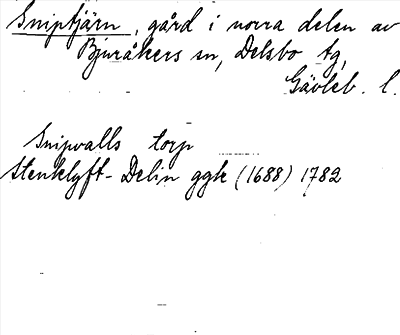 Sniptjärn, gård i norra delen av
Bjuråkers sn, Delsbo tg,
Gävleb. l.
Snipvalls torp
Stenklyft-Delin ggk (1688) 1782